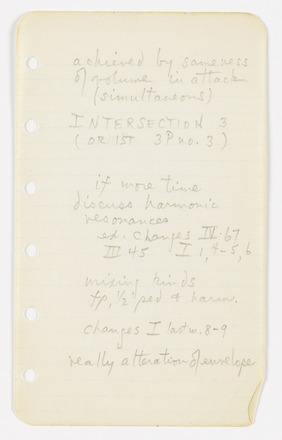 achieved by sameness
of volume in attack
(simultaneous)
INTERSECTION 3
(OR 1ST 3P no. 3)
if more time
discuss harmonic
resonances
ex. Changes IV-67
III 45 I 1, 4-5, 6
mixing kinds
fp, 1/2 ped & harm.
changes I last m. 8-9
really alteration of envelope